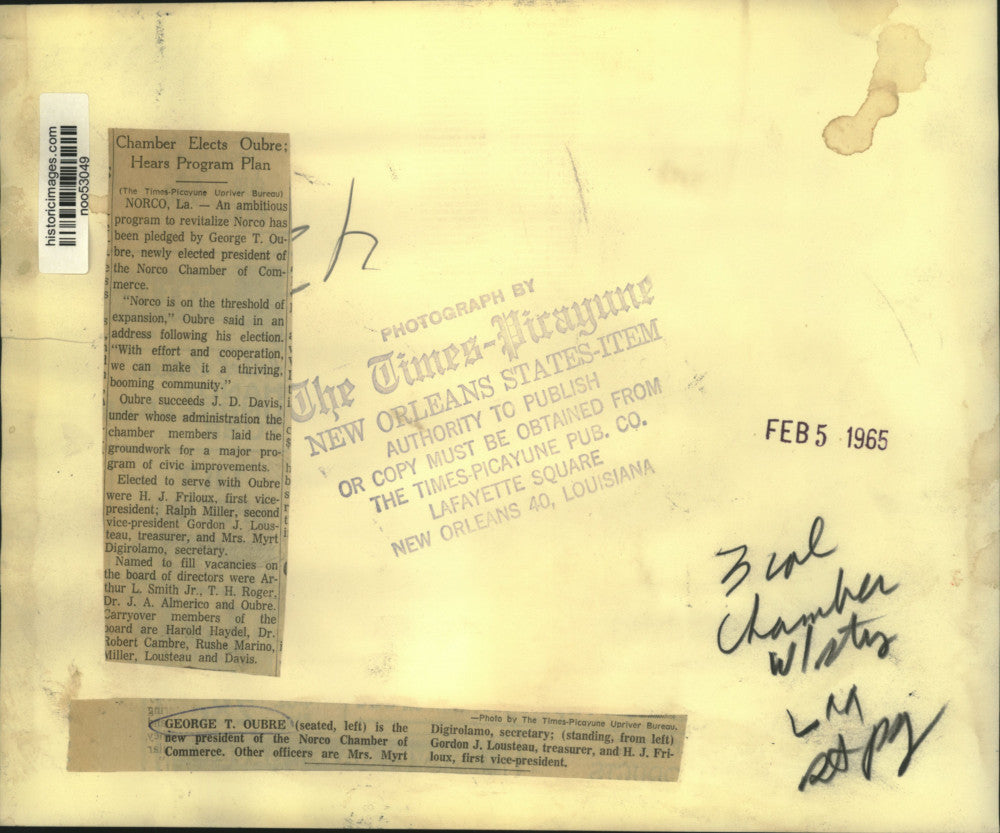 historicimages.com
noo53049
Chamber Elects Oubre;
Hears Program Plan
(The Times-Picayune Upriver Bureau)
NORCO, La. — An ambitious
program to revitalize Norco has
been pledged by George T. Ou-
bre, newly elected president of
the Norco Chamber of Com-
merce.
"Norco is on the threshold of
expansion," Oubre said in an
address following his election.
"With effort and cooperation,
we can make it a thriving,
booming community."
Oubre succeeds J. D. Davis,
under whose administration the
chamber members laid the
groundwork for a major pro-
gram of civic improvements.
Elected to serve with Oubre
were H. J. Friloux, first vice-
president; Ralph Miller, second
vice-president Gordon J. Lous-
teau, treasurer, and Mrs. Myrt
Digirolamo, secretary.
Named to fill vacancies on
the board of directors were Ar-
thur L. Smith Jr., T. H. Roger,
Dr. J. A. Almerico and Oubre.
Carryover members of the
board are Harold Haydel, Dr.
Robert Cambre, Rushe Marino,
Miller, Lousteau and Davis.
PHOTOGRAPH BY
The Times-Picayune
NEW ORLEANS STATES-ITEM
AUTHORITY TO PUBLISH
OR COPY MUST BE OBTAINED FROM
THE TIMES-PICAYUNE PUB. CO.
LAFAYETTE SQUARE
NEW ORLEANS 40, LOUISIANA
FEB 5 1965
3 col
Chamber
w/sty
st pg
GEORGE T. OUBRE (seated, left) is the
new president of the Norco Chamber of
Commerce. Other officers are Mrs. Myrt
—Photo by The Times-Picayune Upriver Bureau.
Digirolamo, secretary; (standing, from left)
Gordon J. Lousteau, treasurer, and H. J. Fri-
loux, first vice-president.